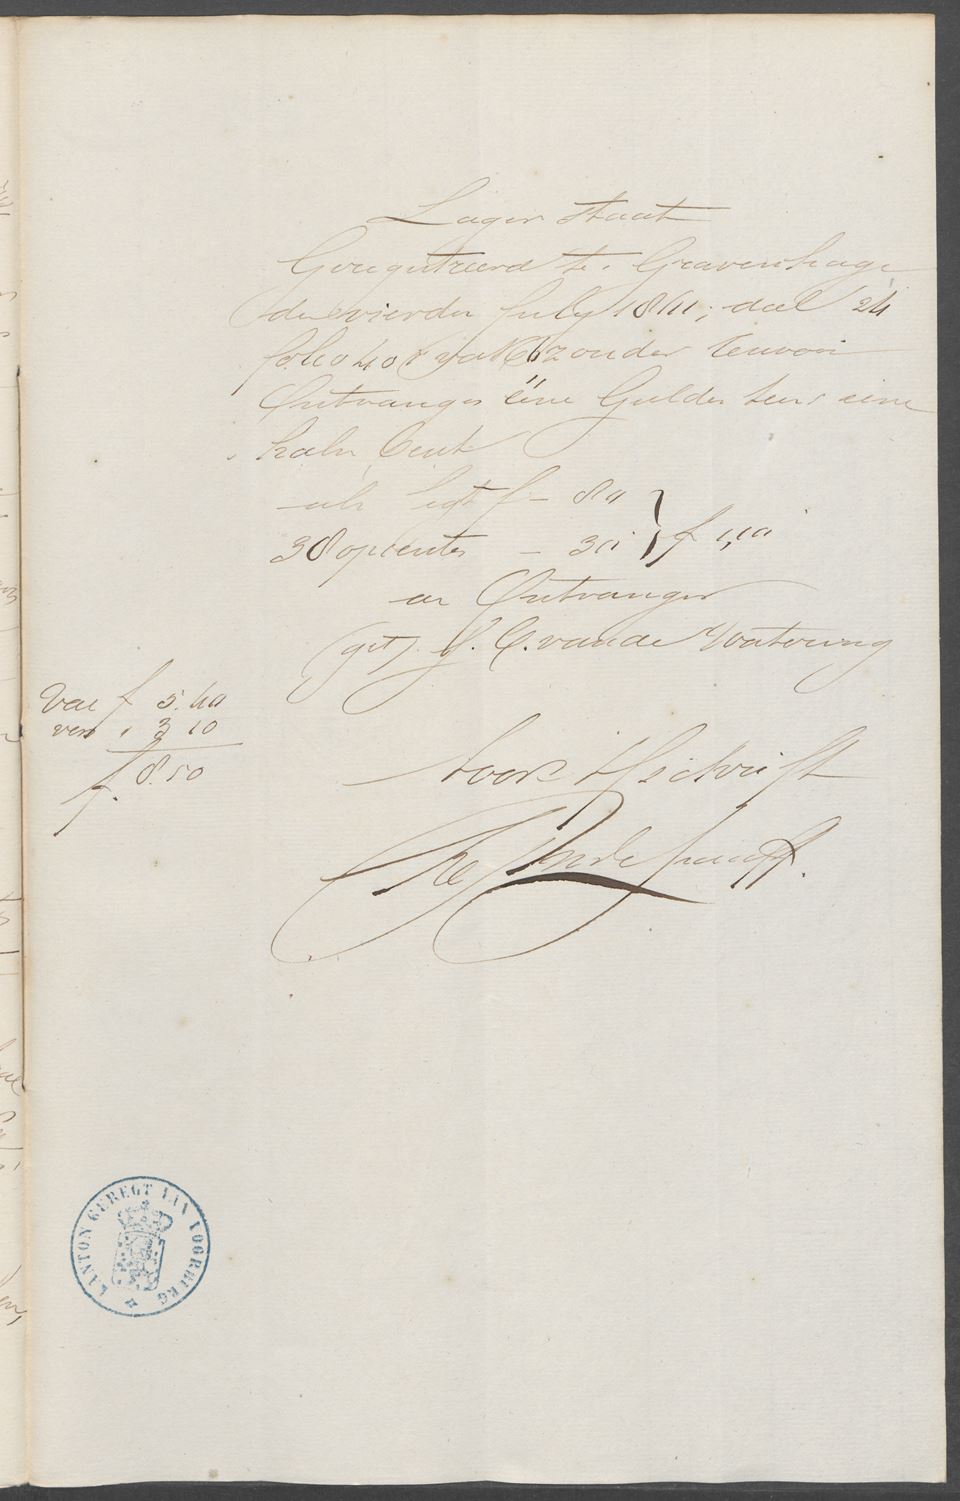 Lager staat
Geregistreerd te 's Gravenhage
den vierden July 1841; deel 24
folio 40 r vak 6 zonder renvooi
Ontvangen één Gulden tien eene
halve Cent
f - 80
38 opcenten - 30 } f 1,10
Ontvanger
(get) J. C. van de Watering
Voor Afschrift
Van f 5.40
3 10
f. 8.50
KANTON GEREGT VAN VOORBURG